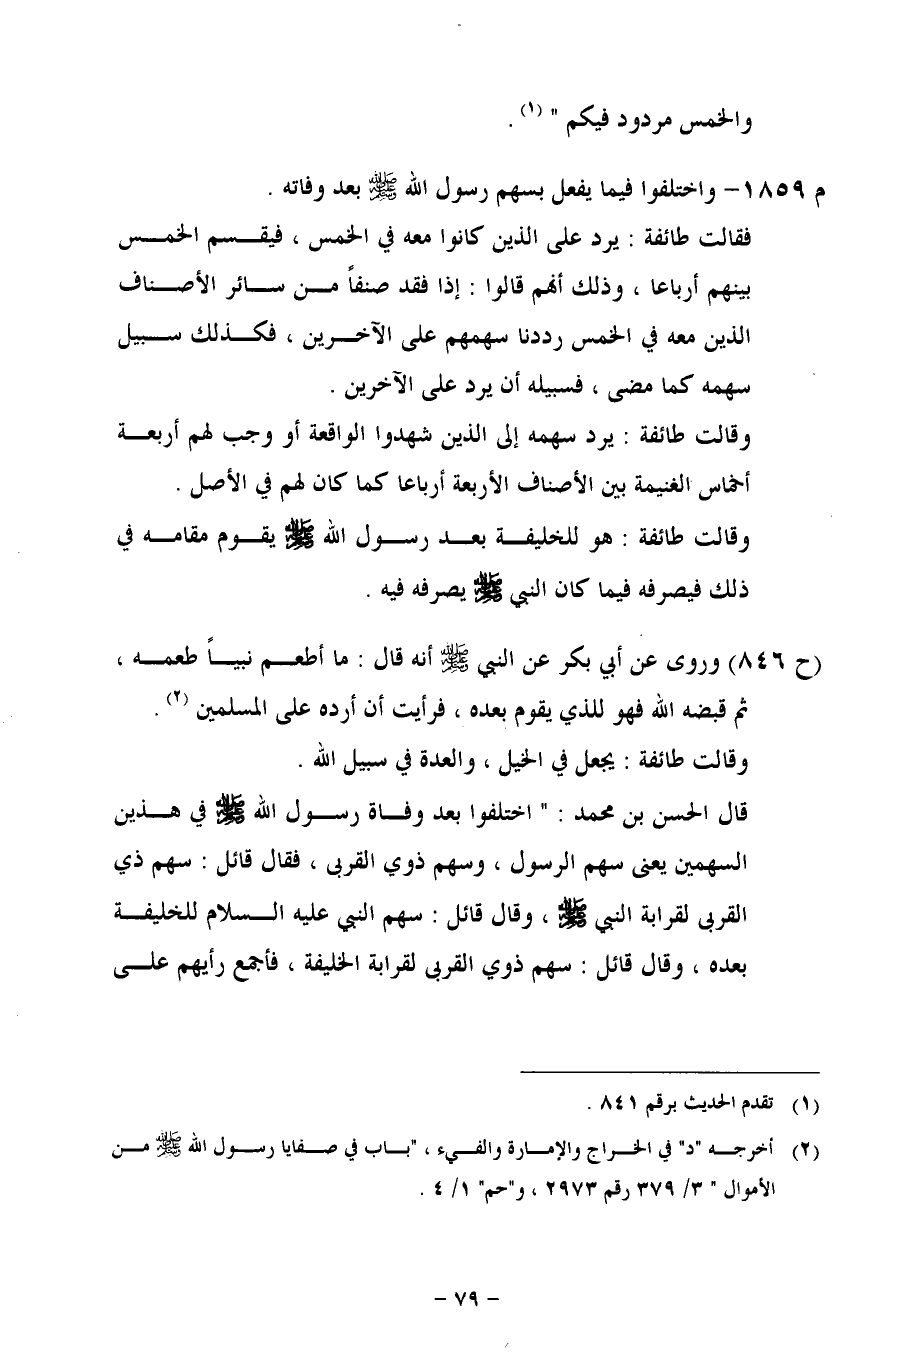 والخمس مردود فيكم " (١) .
م ١٨٥٩- واختلفوا فيما يفعل بسهم رسول الله ﷺ بعد وفاته .
فقالت طائفة : يرد على الذين كانوا معه في الخمس ، فيقـسم الخمـس
بينهم أرباعا ، وذلك أنهم قالوا : إذا فقد صنفاً مـن سـائر الأصـناف
الذين معه في الخمس رددنا سهمهم على الآخـرين ، فكـذلك سـبيل
سهمه كما مضى ، فسبيله أن يرد على الآخرين .
وقالت طائفة : يرد سهمه إلى الذين شهدوا الواقعة أو وجب لهم أربعـة
أخماس الغنيمة بين الأصناف الأربعة أرباعا كما كان لهم في الأصل .
وقالت طائفة : هو للخليفـة بعـد رسـول الله ﷺ يقـوم مقامـه في
ذلك فيصرفه فيما كان النبي ﷺ يصرفه فيه .
(ح ٨٤٦) وروى عن أبي بكر عن النبي ﷺ أنه قال : ما أطعـم نبيـاً طعمـه ،
ثم قبضه الله فهو للذي يقوم بعده ، فرأيت أن أرده على المسلمين (٢) .
وقالت طائفة : يجعل في الخيل ، والعدة في سبيل الله .
قال الحسن بن محمد : " اختلفوا بعد وفـاة رسـول الله ﷺ في هـذين
السهمين يعنى سهم الرسول ، وسهم ذوي القربى ، فقال قائل : سهم ذي
القربى لقرابة النبي ﷺ ، وقال قائل : سهم النبي عليه الـسلام للخليفـة
بعده ، وقال قائل : سهم ذوي القربى لقرابة الخليفة ، فأجمع رأيهم علـى
(١) تقدم الحديث برقم ٨٤١ .
(٢) أخرجـه "د" في الخـراج والإمـارة والفـيء ، "بـاب في صـفايا رسـول الله ﷺ مـن
الأموال " ٣/ ٣٧٩ رقم ٢٩٧٣ ، و"حم" ١/ ٤ .
- ٧٩ -